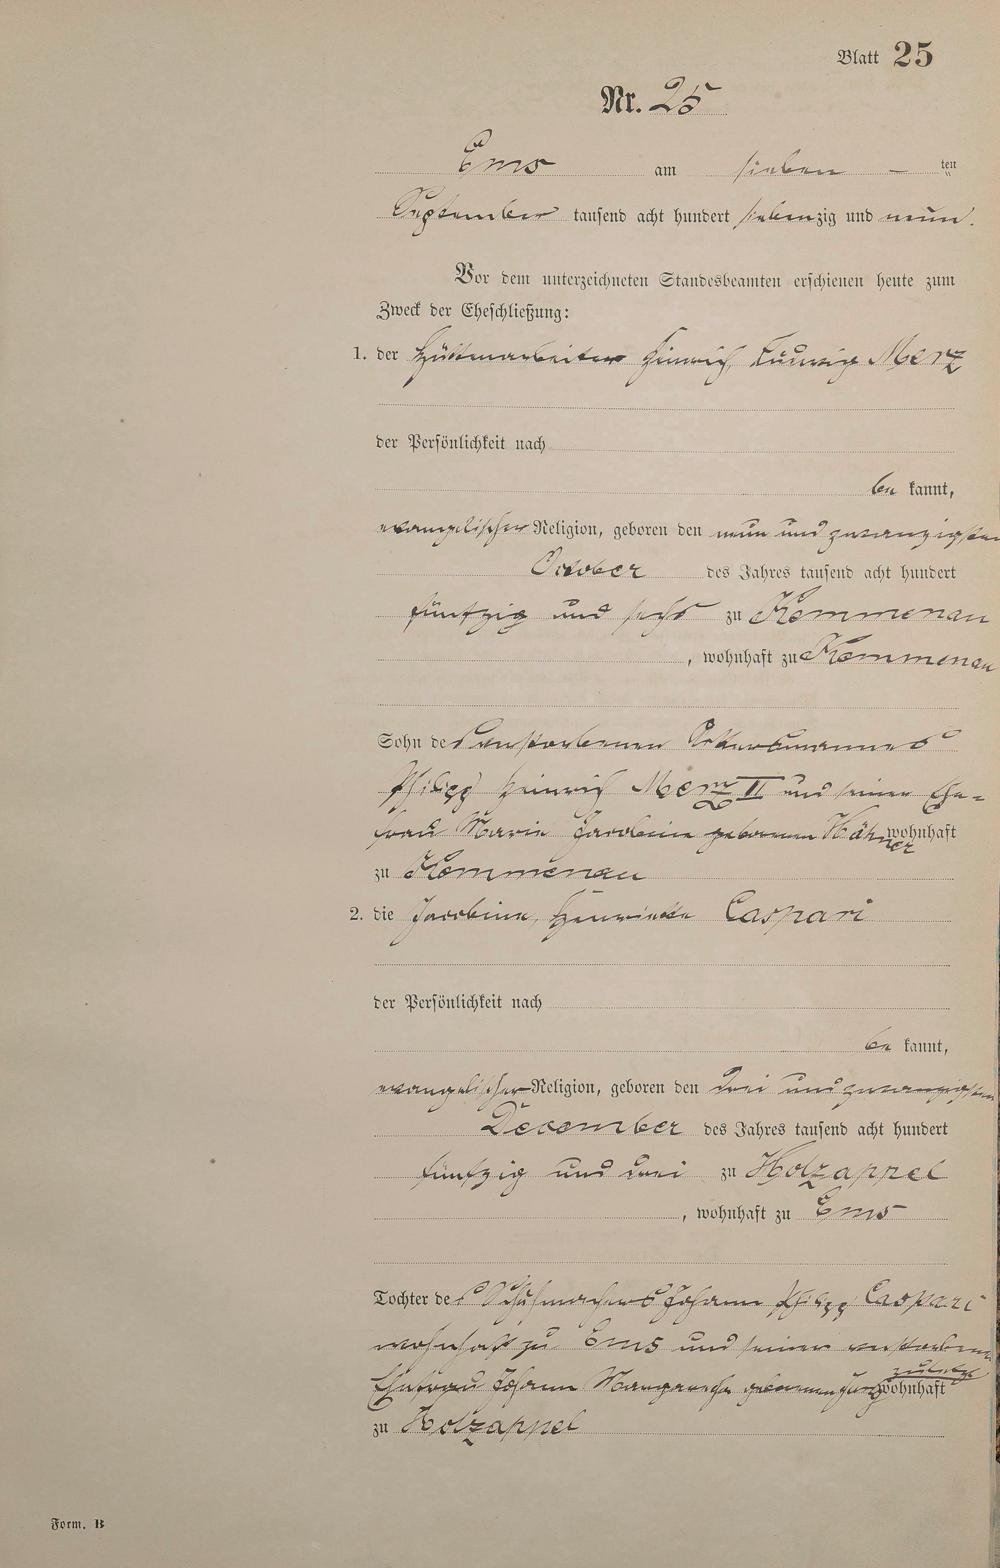 Blatt 25
Nr. 25
Ems am sieben – ten
September tausend acht hundert siebenzig und neun.
Vor dem unterzeichneten Standesbeamten erschienen heute zum
Zweck der Eheschließung:
1. der Hüttenarbeiter Heinrich Ludwig Merz
der Persönlichkeit nach
be kannt,
evangelischer Religion, geboren den neun und zwanzigsten
October des Jahres tausend acht hundert
fünfzig und sechs zu Kemmenau
, wohnhaft zu Kemmenau
Sohn des verstorbenen Ackermannes
Philipp Heinrich Merz II und seiner Ehe-
frau Marie Jacobine geborenen Hähner wohnhaft
zu Kemmenau
2. die Jacobine, Henriette Caspari
der Persönlichkeit nach
be kannt,
evangelischer Religion, geboren den drei und zwanzigsten
December des Jahres tausend acht hundert
fünfzig und drei zu Holzappel
, wohnhaft zu Ems
Tochter des Schuhmachers Johann Philipp Caspari
wohnhaft zu Ems und seiner verstorbenen
Ehefrau Johann Margarethe geborenen zuletzt wohnhaft
zu Holzappel
Form. B